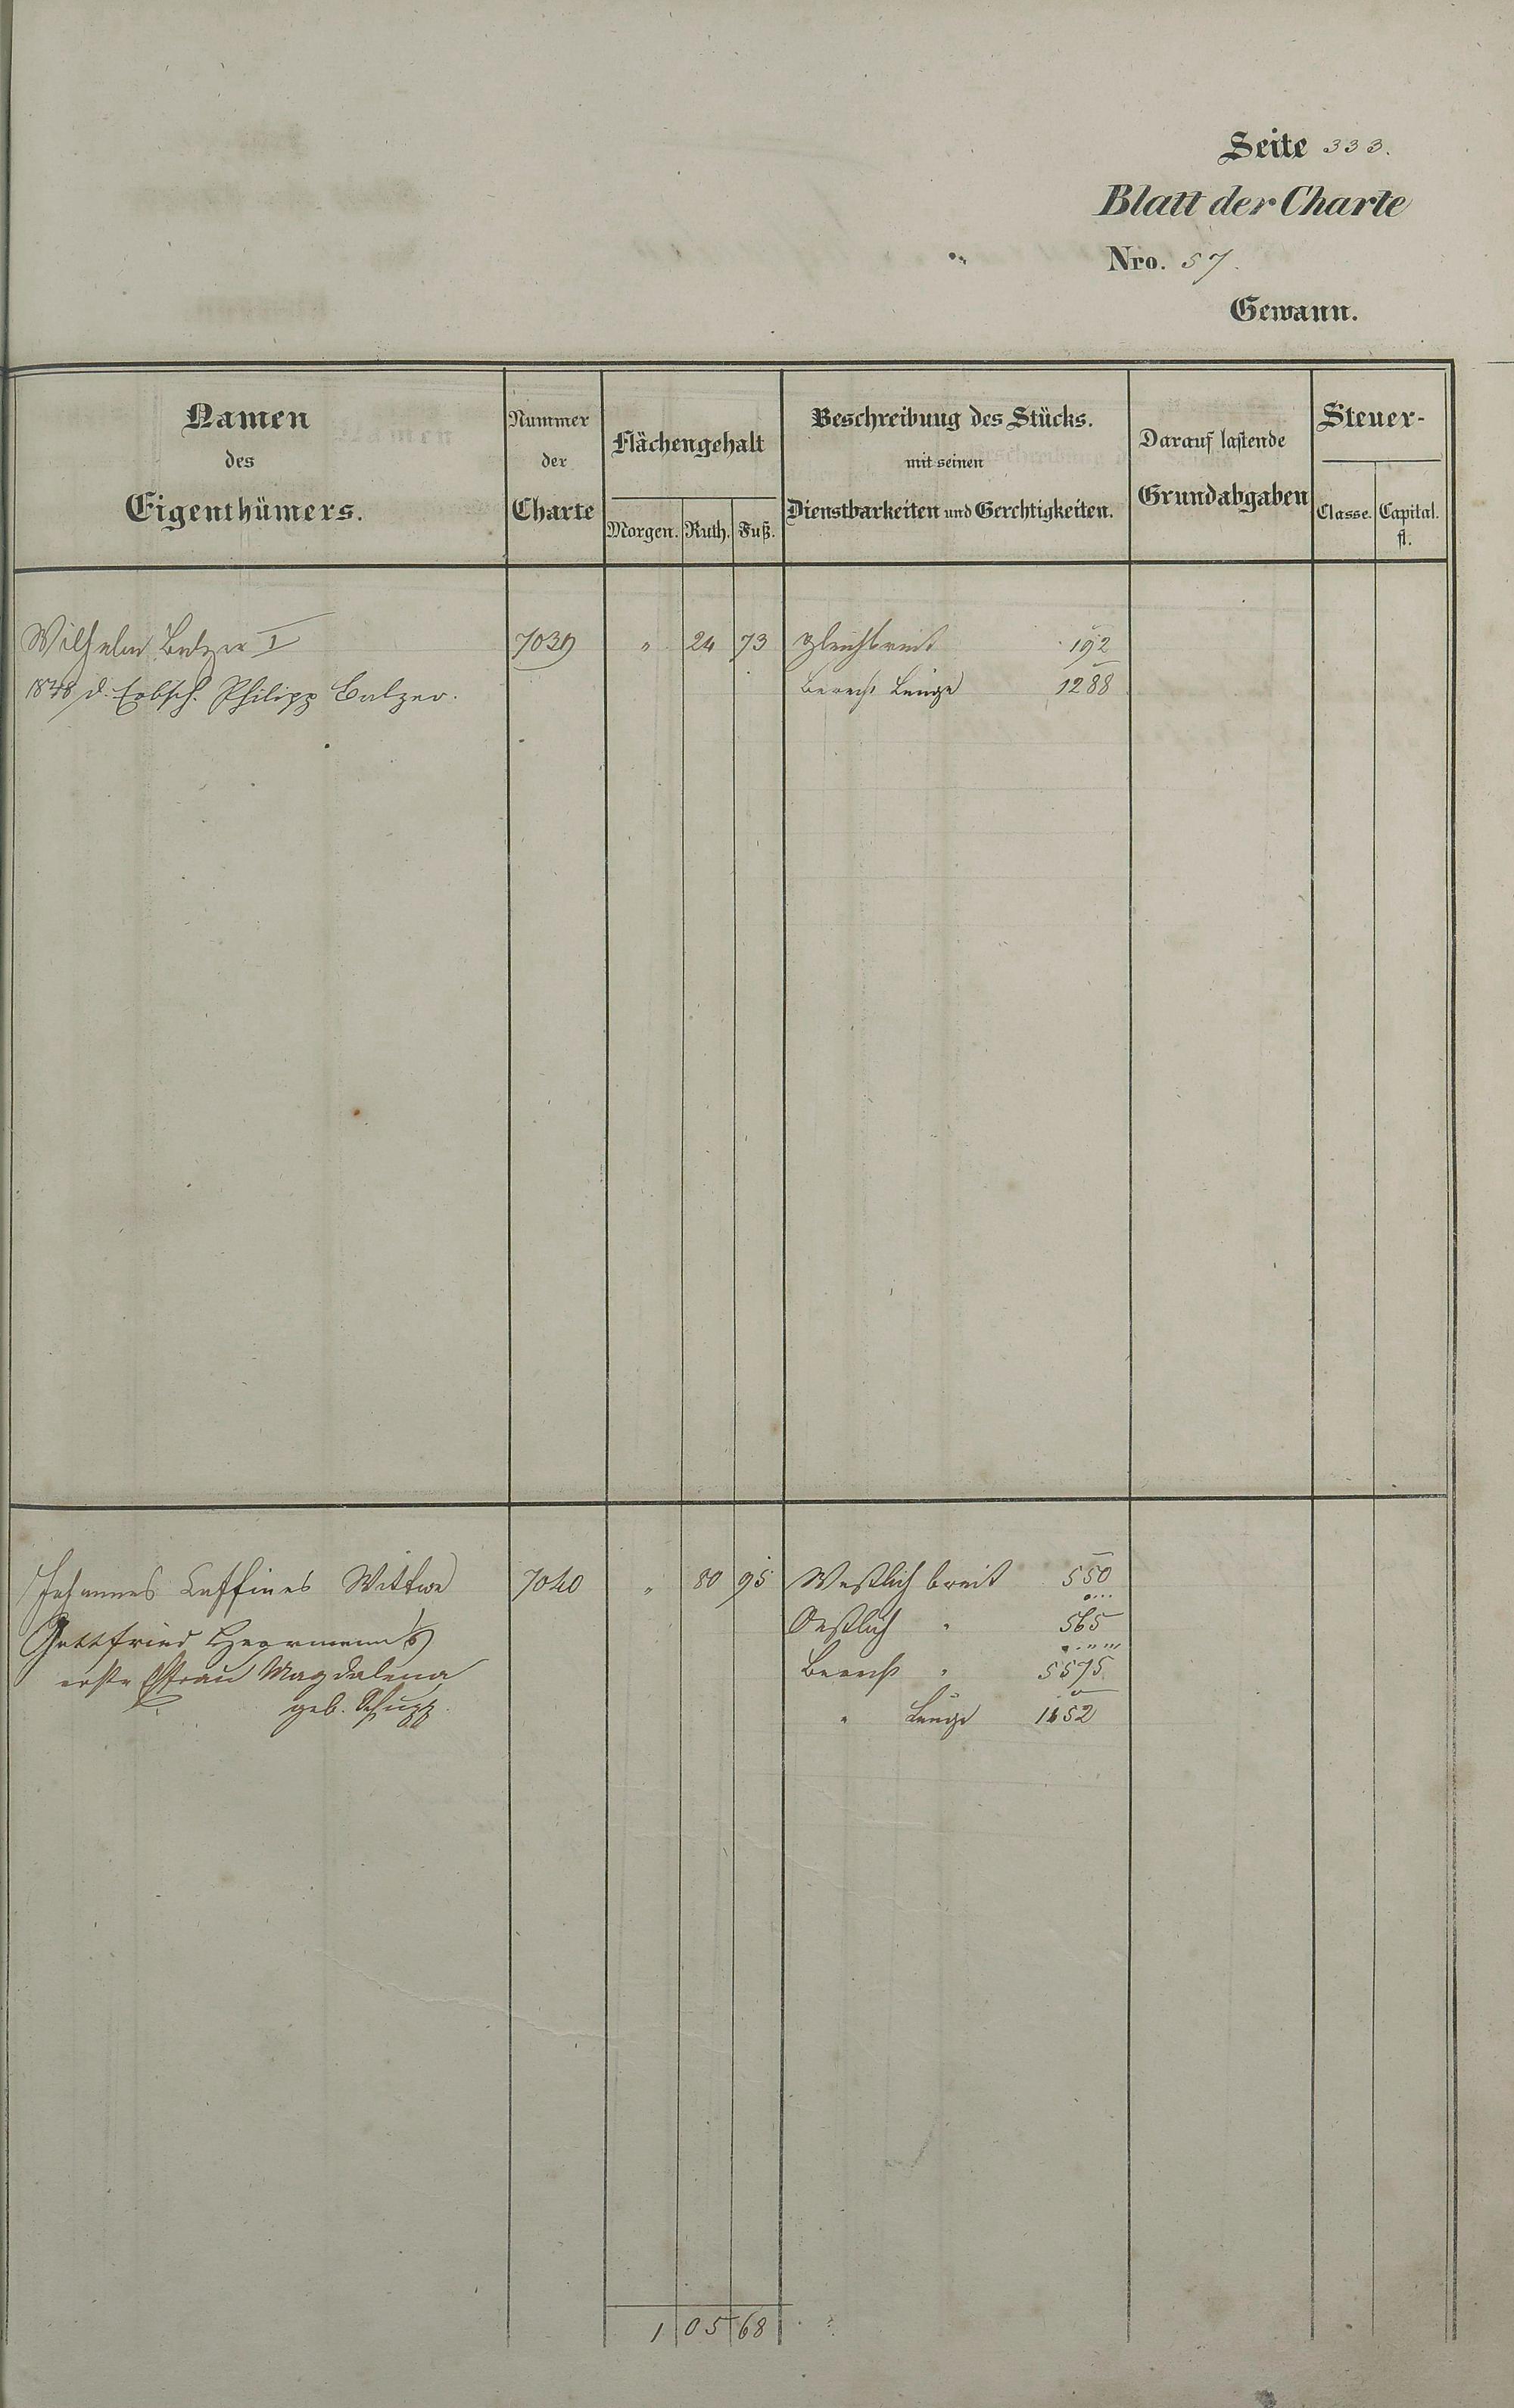 Seite 333.
Blatt der Charte
Nro. 57.
Gewann.
Namen des Eigenthümers.
Nummer der Charte
Flächengehalt
Morgen. Ruth. Fuß.
Beschreibung des Stücks.
mit seinen
Dienstbarkeiten und Gerechtigkeiten.
Darauf lastende
Grundabgaben
Steuer-
Classe. Capital.
fl.
Wilhelm Balzer I 7039 " 24 73 Gleichbreit 192
1848 d. Erbsch. Philipp Balzer. Berech Länge 1288
Johannes Wittwe 7040 " 80 95 Westlich breit 550
Gottfried Herrmann's Oestlich " 565
erste Magdalena Berech " 5575
geb. Schupp. " Länge 1452
1 05 68